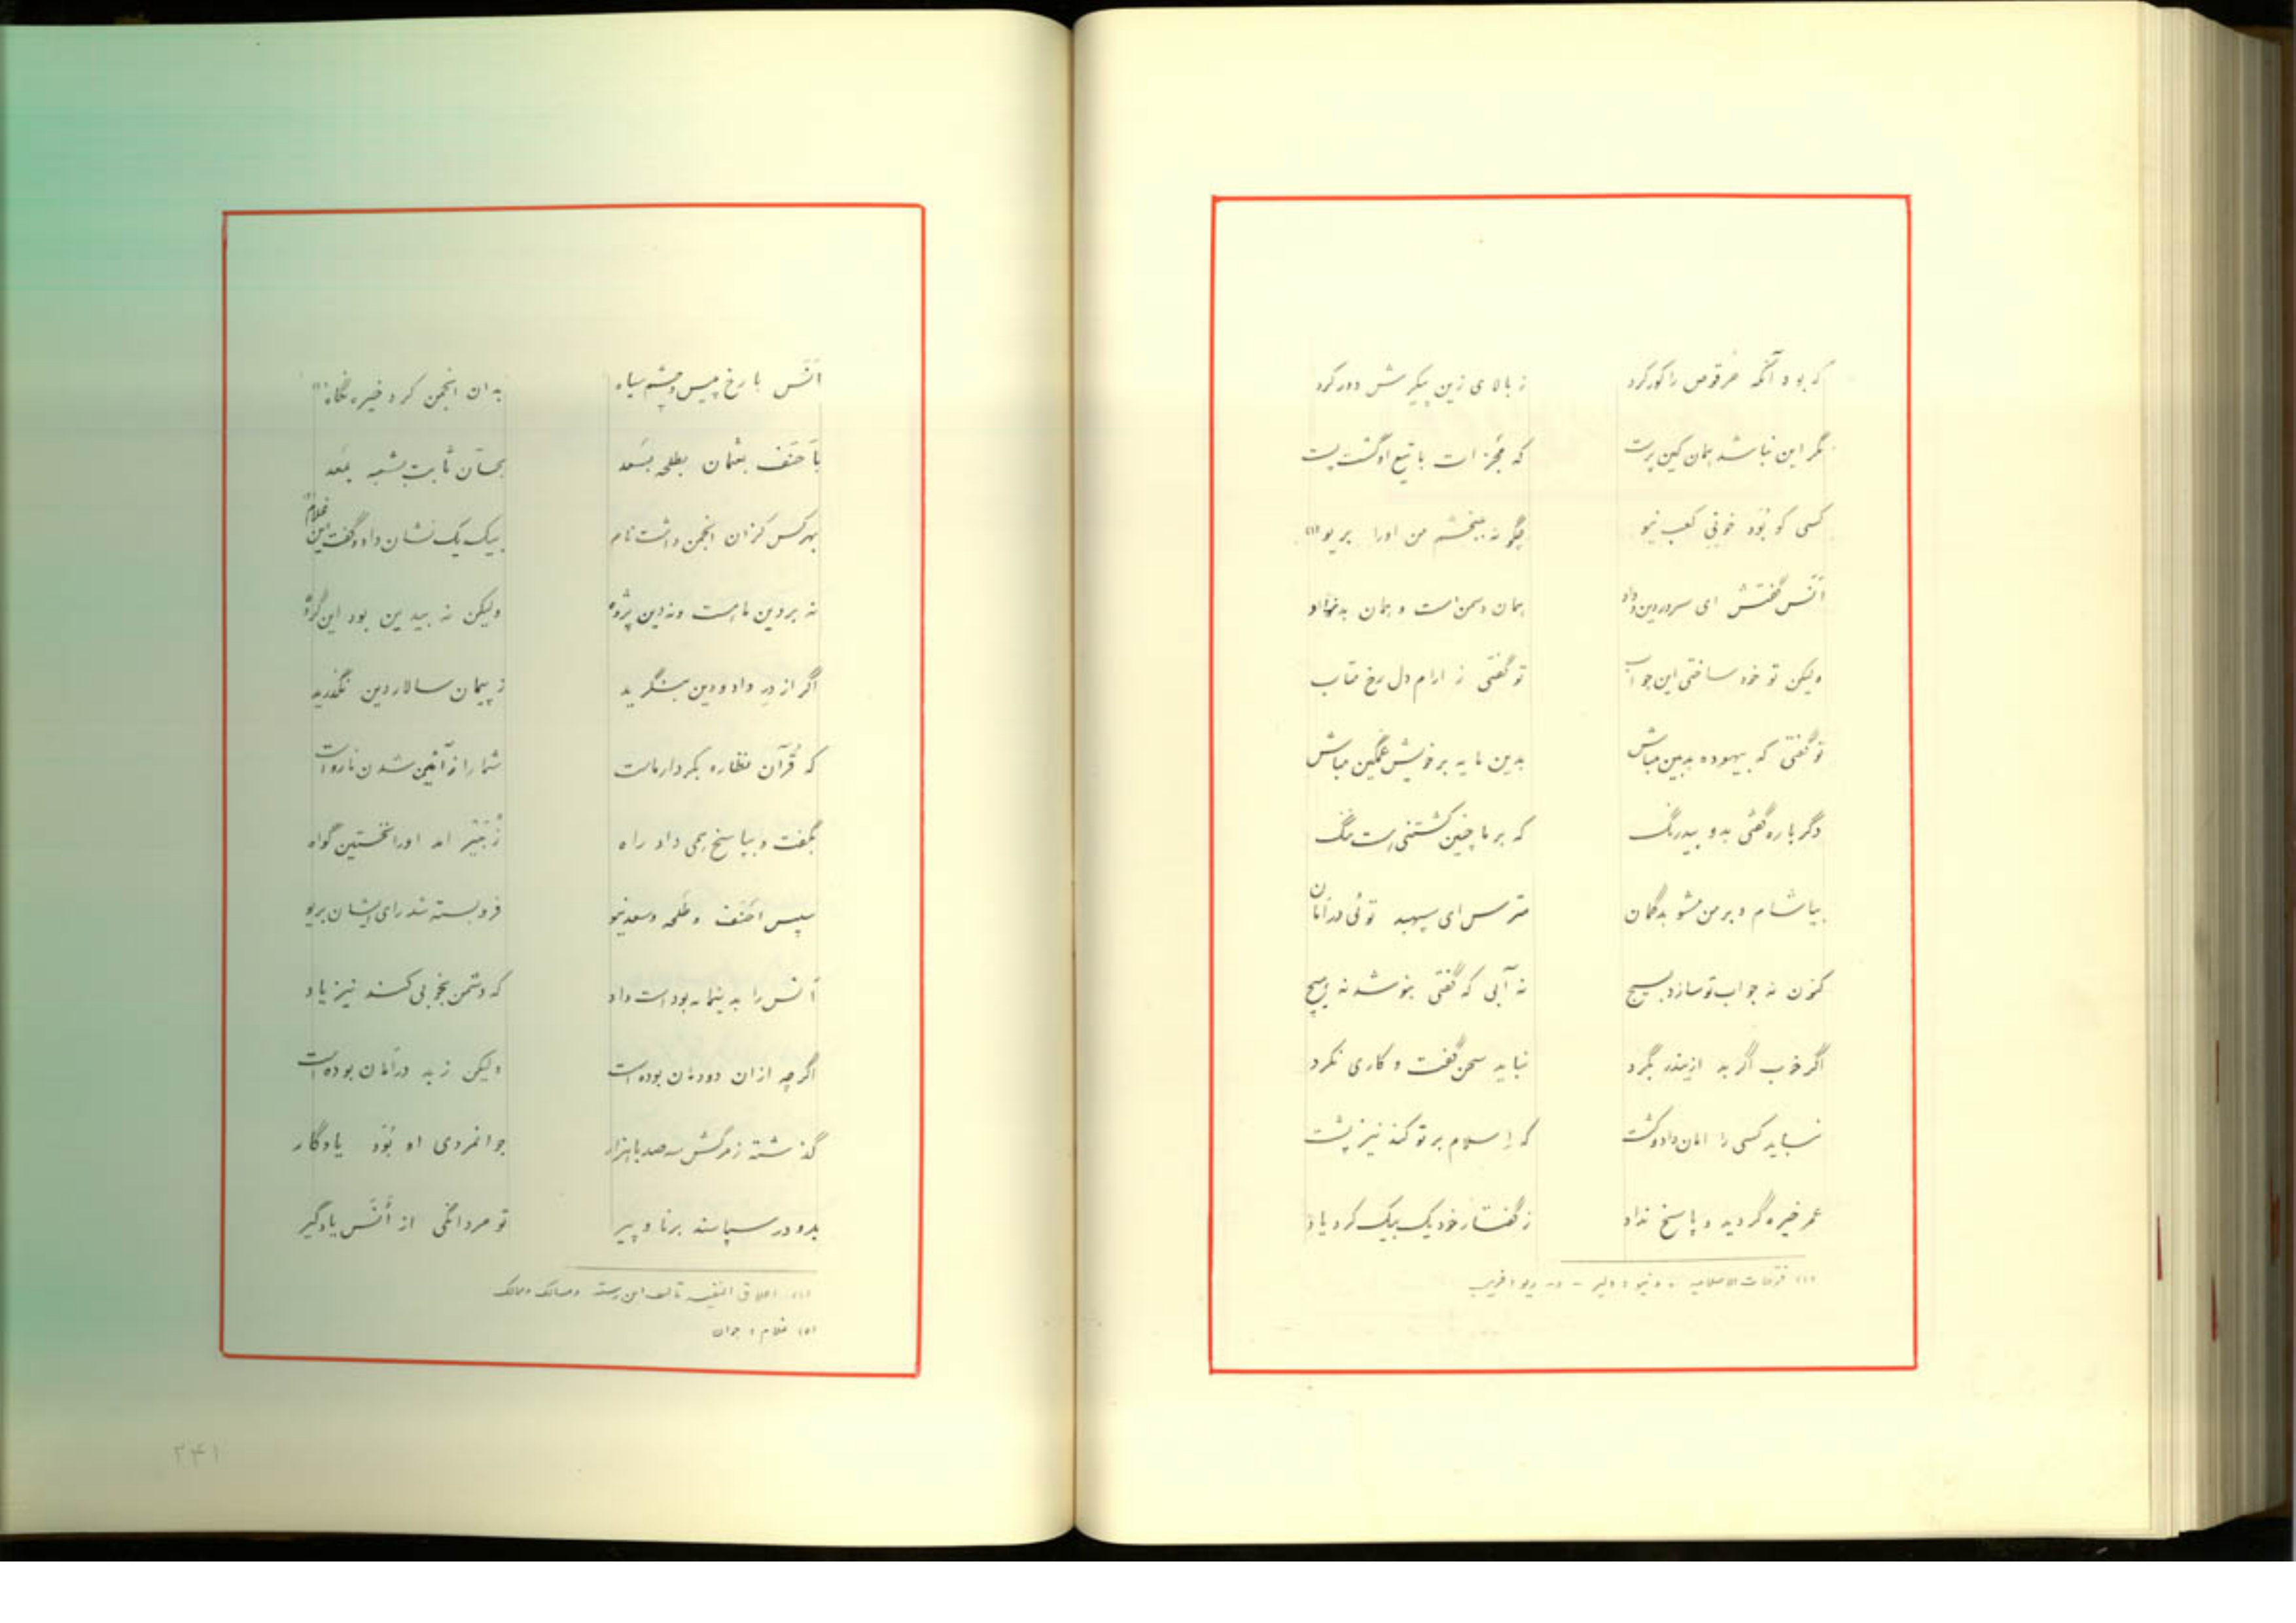 که بود آنکه حرقوص را کور کرد    ز بالای زین پیکرش دور کرد
مگر این نباشد همان کین پرست    که مجزات با تیغ او گشت پست
کسی کو بود خونی کعب نیو    چگونه ببخشم من او را بریو (۱)
انس گفتش ای سرور دین و داد    همان دشمن است و همان بدنژاد
ولیکن تو خود ساختی این جواب    تو گفتی ز آرام دل رخ متاب
تو گفتی که بیهوده بدبین مباش    بدین مایه بر خویش غمگین مباش
دگرباره گفتی بدو بیدرنگ    که بر ما چنین کشتنی است ننگ
بیاشام و بر من مشو بدگمان    مترس ای سپهبد توئی در امان
کنون نه جواب تو سازد بسیج    نه آبی که گفتی بنوشد نه هیچ
اگر خوب اگر بد از ایندر بگرد    نباید سخن گفت و کاری نکرد
نباید کسی را امان داد و کشت    که اسلام بر تو کند نیز پشت
عمر خیره گردید و پاسخ نداد    ز گفتار خود یک بیک کرد یاد
(۱) فتوحات الاسلامیه - نیو، دلیر - ریو، فریب
انس با رخ پیس و چشم سیاه    بدان انجمن کرد خیره نگاه (۱)
باحنف بعثمان بطلحه بسعد    بحسان ثابت بشعبه بمعد
بهر کس کزان انجمن داشت نام    بیک یک نشان داد و گفت این غلام
نه بر دین ماست و نه دین پژوه    ولیکن نه بیدین بود این گروه
اگر از در داد و دین بنگرید    ز پیمان سالار دین نگذرید
که قرآن نظاره بکردار ماست    شما را نه آئین شدن نارواست
بگفت و بپاسخ همی داد راه    زبیر آمد او را نخستین گواه
سپس احنف و طلحه و سعد نیو    فرو بسته شد رای ایشان بریو
انس را بود است داد    که دشمن بخوبی کند نیز یاد
اگر چه از آن دودمان بوده است    ولیکن ز بد در امان بوده است
گذشته ز مرگش سه صد با هزار    جوانمردی او بود یادگار
بدو در سپاسند برنا و پیر    تو مردانگی از انس یاد گیر
(۱) اعلاق النفیسه تالیف ابن رسته و مسالک و ممالک
(۵) غلام، جوان
۲۴۱